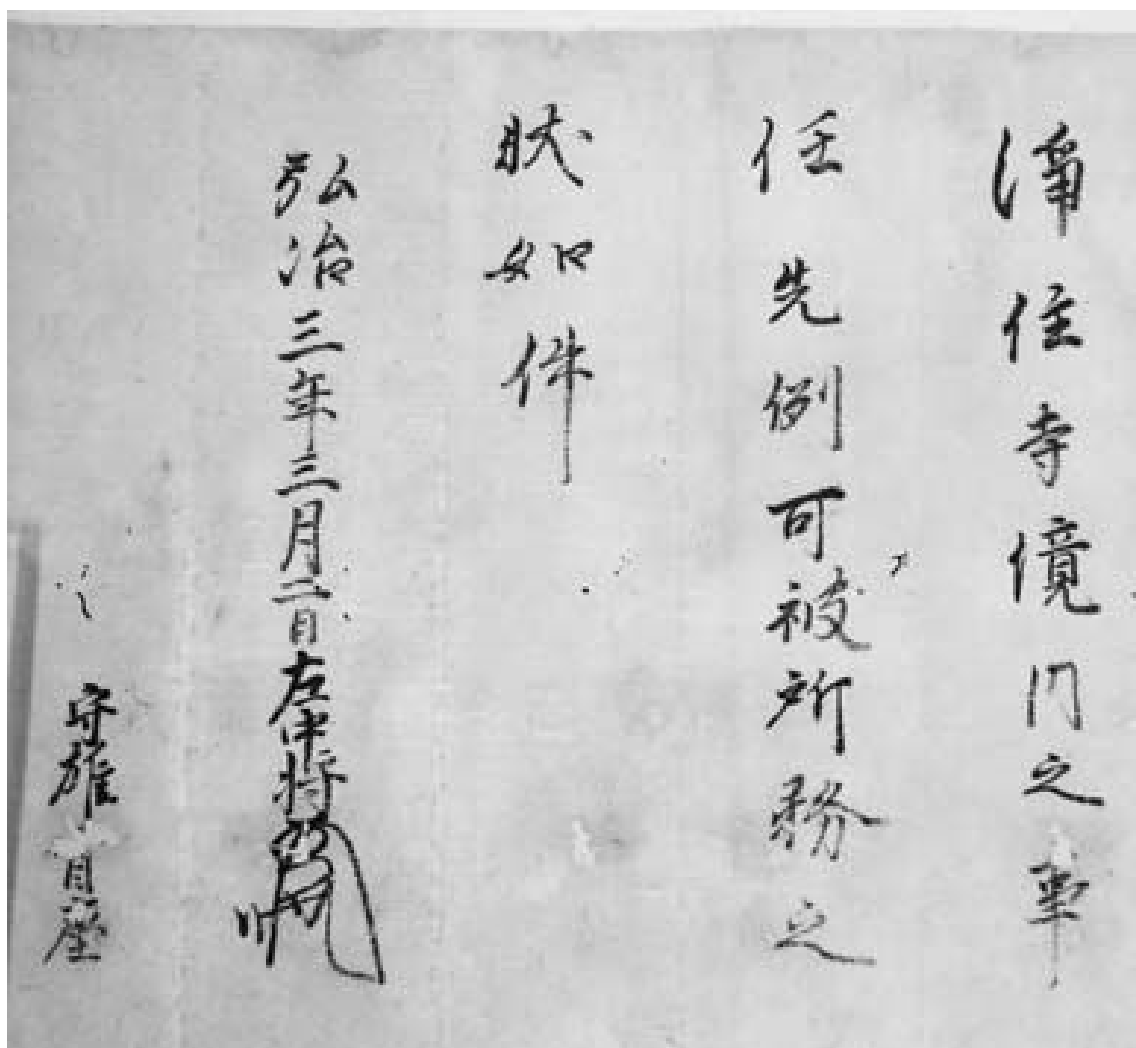 浄住寺境内之事
任先例可被所務之
状如件
弘治三年三月二日左中将
守雄首座